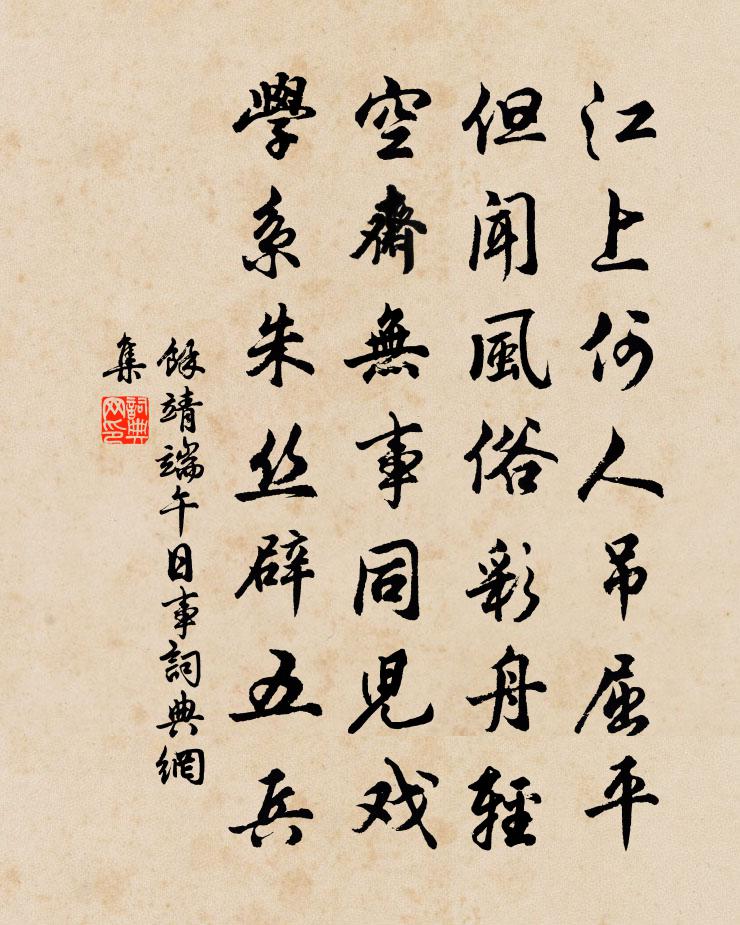 江上何人吊屈平
但聞風俗彩舟輕
空齋無事同兒戏
學系朱丝辟五兵
餘靖端午日事詞典網
集
詞典
网印